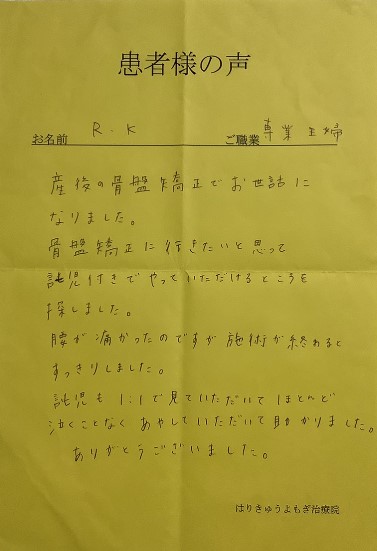 患者様の声
お名前 R.K ご職業 専業主婦
産後の骨盤矯正でお世話に
なりました。
骨盤矯正に行きたいと思って
託児付きでやっていただけるところを
探しました。
腰が痛かったのですが施術が終わると
すっきりしました。
託児も1:1で見ていただいてほとんど
泣くことなくあやしていただいて助かりました。
ありがとうございました。
はりきゅうよもぎ治療院